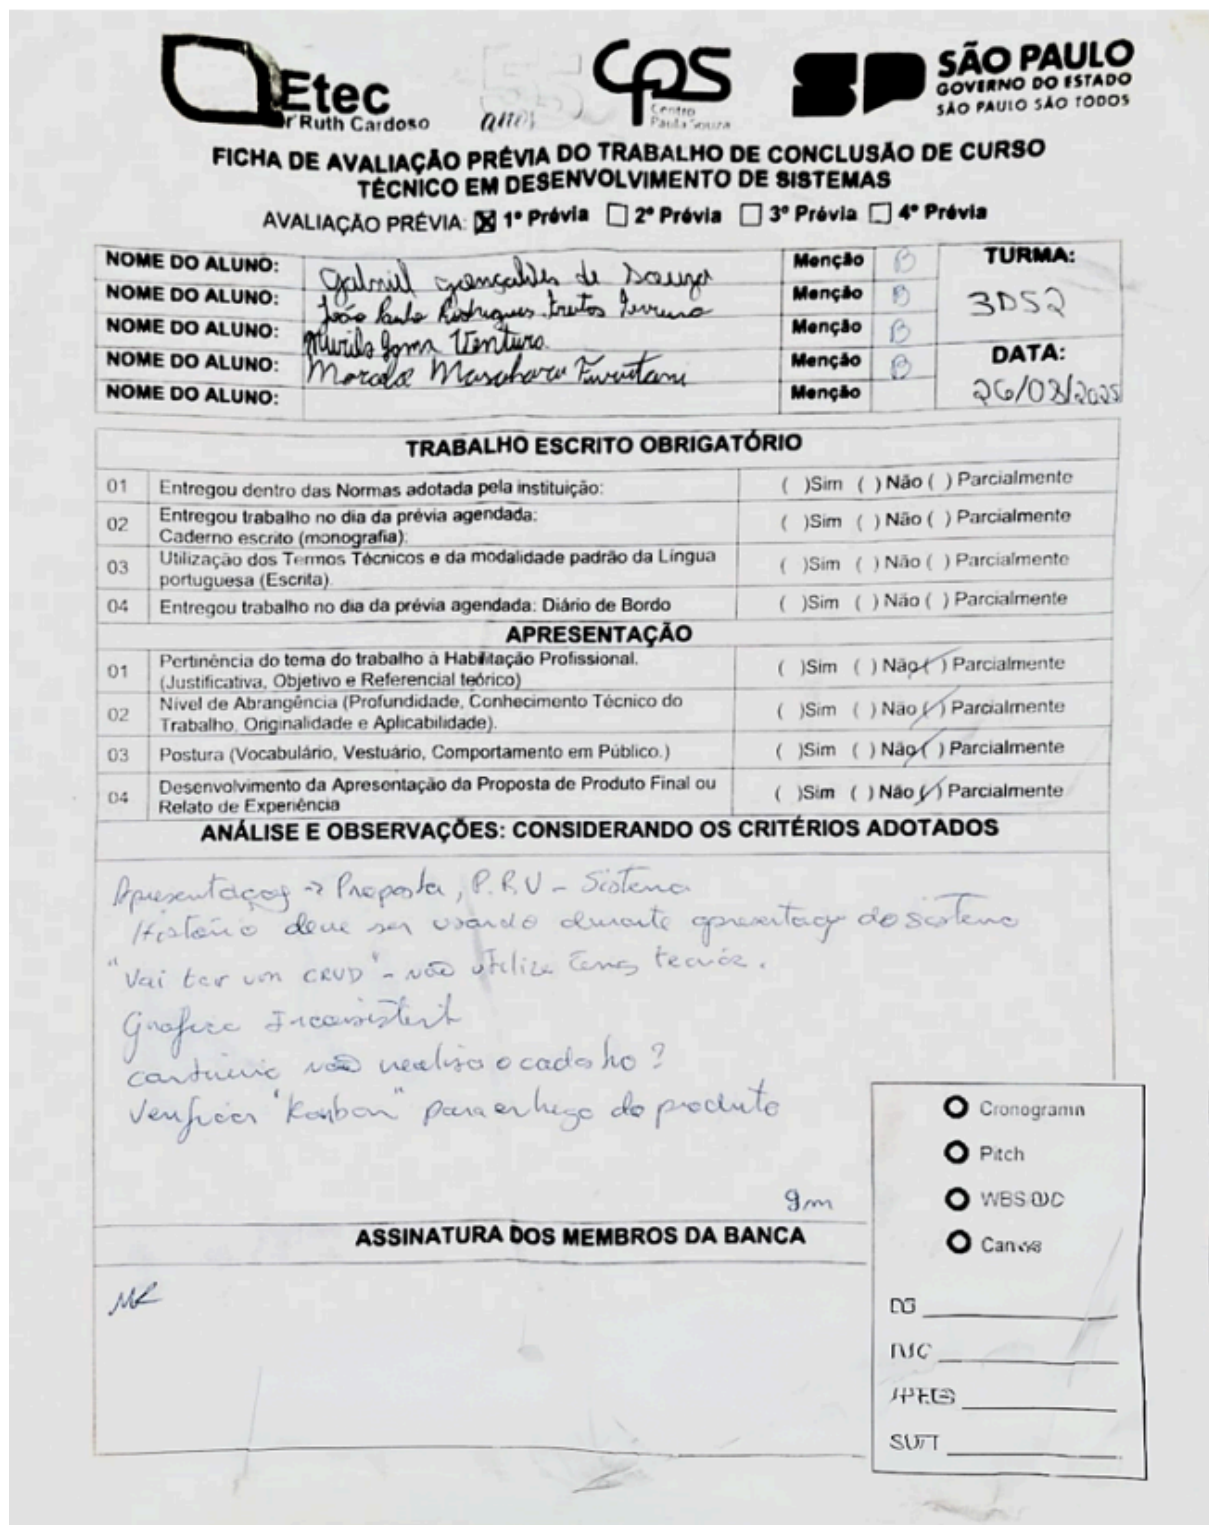 Etec
Ruth Cardoso
55
anos
CPS
Centro
Paula Souza
SP
SÃO PAULO
GOVERNO DO ESTADO
SÃO PAULO SÃO TODOS
FICHA DE AVALIAÇÃO PRÉVIA DO TRABALHO DE CONCLUSÃO DE CURSO
TÉCNICO EM DESENVOLVIMENTO DE SISTEMAS
AVALIAÇÃO PRÉVIA: ☒ 1ª Prévia ☐ 2ª Prévia ☐ 3ª Prévia ☐ 4ª Prévia
NOME DO ALUNO: Gabriel Gonçalves de Souza Menção B TURMA:
NOME DO ALUNO: João Paulo Rodrigues Menção B 3DS2
NOME DO ALUNO: Murilo Ventura Menção B
NOME DO ALUNO: Masaharu Furutani Menção B DATA:
NOME DO ALUNO: Menção 26/03/2025
TRABALHO ESCRITO OBRIGATÓRIO
01 Entregou dentro das Normas adotada pela instituição: ( )Sim ( ) Não ( ) Parcialmente
02 Entregou trabalho no dia da prévia agendada: ( )Sim ( ) Não ( ) Parcialmente
Caderno escrito (monografia):
03 Utilização dos Termos Técnicos e da modalidade padrão da Língua ( )Sim ( ) Não ( ) Parcialmente
portuguesa (Escrita).
04 Entregou trabalho no dia da prévia agendada: Diário de Bordo ( )Sim ( ) Não ( ) Parcialmente
APRESENTAÇÃO
01 Pertinência do tema do trabalho à Habilitação Profissional. ( )Sim ( ) Não (/) Parcialmente
(Justificativa, Objetivo e Referencial teórico)
02 Nível de Abrangência (Profundidade, Conhecimento Técnico do ( )Sim ( ) Não (/) Parcialmente
Trabalho, Originalidade e Aplicabilidade).
03 Postura (Vocabulário, Vestuário, Comportamento em Público.) ( )Sim ( ) Não (/) Parcialmente
04 Desenvolvimento da Apresentação da Proposta de Produto Final ou ( )Sim ( ) Não (/) Parcialmente
Relato de Experiência
ANÁLISE E OBSERVAÇÕES: CONSIDERANDO OS CRITÉRIOS ADOTADOS
Apresentação → Proposta, P.R.V - Sistema
História deve ser usando durante apresentação do sistema
"Vai ter um CRUD" - não utilize
não realiza o cadastro?
Verificar "Kanban" para entrega do produto
9m
ASSINATURA DOS MEMBROS DA BANCA
MR
Cronograma
Pitch
WBS
Canvas